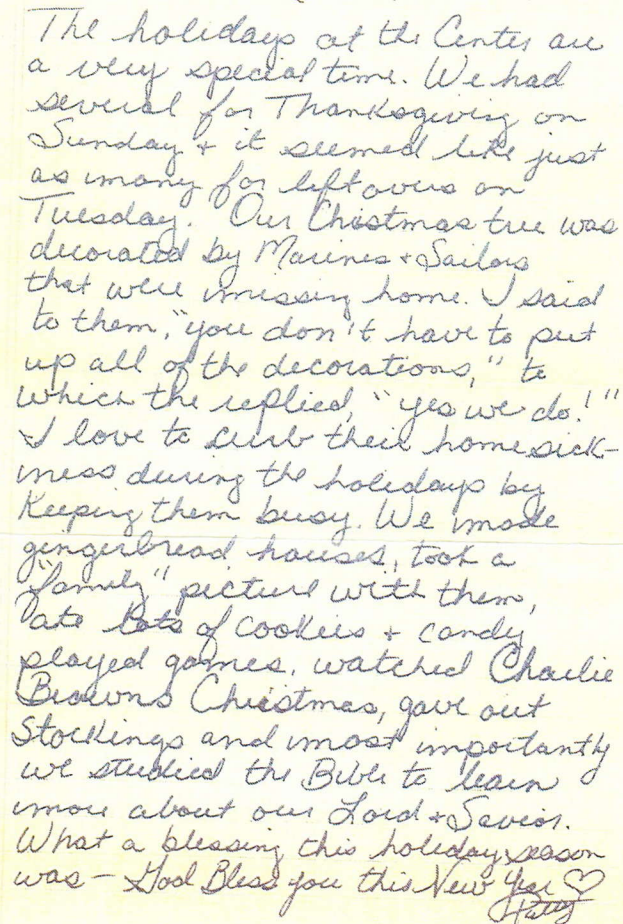 The holidays at the Center are
a very special time. We had
several for Thanksgiving on
Sunday + it seemed like just
as many for leftovers on
Tuesday. Our Christmas tree was
decorated by Marines + Sailors
that were missing home. I said
to them, "you don't have to put
up all of the decorations," to
which the replied, "yes we do!"
I love to curb their homesick-
ness during the holidays by
Keeping them busy. We made
gingerbread houses, took a
"family" picture with them,
ate lots of cookies + candy
played games, watched Charlie
Browns Christmas, gave out
Stockings and most importantly
we studied the Bible to learn
more about our Lord + Savior.
What a blessing this holiday season
was - God Bless you this New Year ♡
Patty